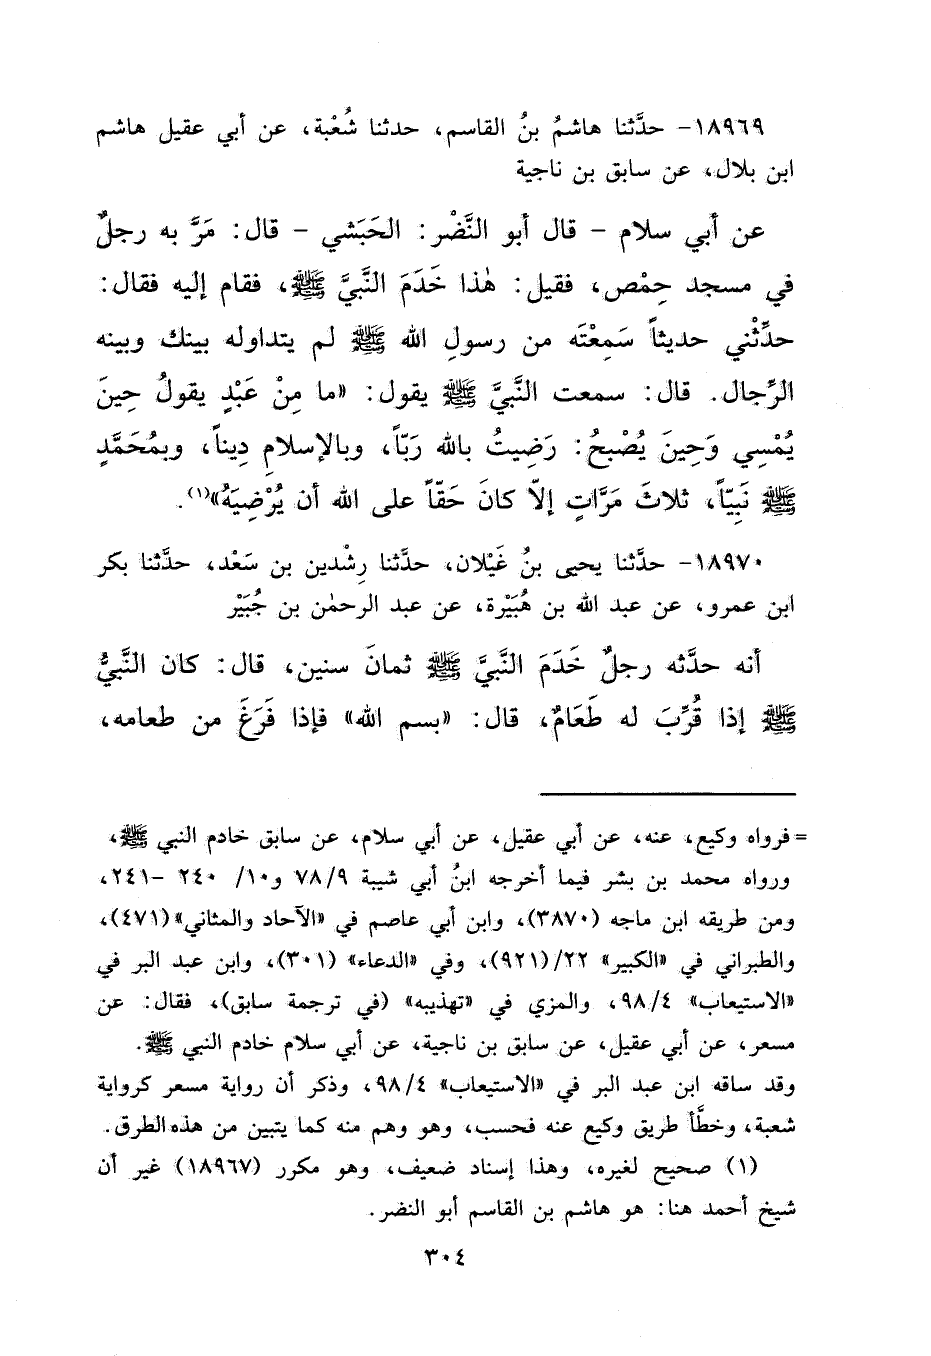 ١٨٩٦٩- حدَّثنا هاشمُ بنُ القاسم، حدثنا شُعْبة، عن أبي عقيل هاشم
ابن بلال، عن سابق بن ناجية
عن أبي سلام - قال أبو النَّضْر: الحَبَشي - قال: مَرَّ به رجلٌ
في مسجد حِمْص، فقيل: هٰذا خَدَمَ النَّبيَّ ﷺ، فقام إليه فقال:
حدِّثْني حديثاً سَمِعْتَه من رسولِ الله ﷺ لم يتداوله بينك وبينه
الرِّجال. قال: سمعت النَّبيَّ ﷺ يقول: «ما مِنْ عَبْدٍ يقولُ حِينَ
يُمْسِي وَحِينَ يُصْبحُ: رَضِيتُ بالله رَبّاً، وبالإسلامِ دِيناً، وبمُحَمَّدٍ
ﷺ نَبِيّاً، ثلاثَ مَرَّاتٍ إلاّ كانَ حَقّاً على الله أن يُرْضِيَهُ»(١).
١٨٩٧٠- حدَّثنا يحيى بنُ غَيْلان، حدَّثنا رِشْدين بن سَعْد، حدَّثنا بكر
ابن عمرو، عن عبد الله بن هُبَيْرة، عن عبد الرحمٰن بن جُبَيْر
أنه حدَّثه رجلٌ خَدَمَ النَّبيَّ ﷺ ثمانَ سنين، قال: كان النَّبيُّ
ﷺ إذا قُرِّبَ له طَعَامٌ، قال: «بسم الله» فإذا فَرَغَ من طعامه،
= فرواه وكيع، عنه، عن أبي عقيل، عن أبي سلام، عن سابق خادم النبي ﷺ،
ورواه محمد بن بشر فيما أخرجه ابنُ أبي شيبة ٧٨/٩ و١٠/ ٢٤٠ -٢٤١،
ومن طريقه ابن ماجه (٣٨٧٠)، وابن أبي عاصم في «الآحاد والمثاني»(٤٧١)،
والطبراني في «الكبير» ٢٢/(٩٢١)، وفي «الدعاء» (٣٠١)، وابن عبد البر في
«الاستيعاب» ٩٨/٤، والمزي في «تهذيبه» (في ترجمة سابق)، فقال: عن
مسعر، عن أبي عقيل، عن سابق بن ناجية، عن أبي سلام خادم النبي ﷺ.
وقد ساقه ابن عبد البر في «الاستيعاب» ٩٨/٤، وذكر أن رواية مسعر كرواية
شعبة، وخطَّأ طريق وكيع عنه فحسب، وهو وهم منه كما يتبين من هذه الطرق.
(١) صحيح لغيره، وهذا إسناد ضعيف، وهو مكرر (١٨٩٦٧) غير أن
شيخ أحمد هنا: هو هاشم بن القاسم أبو النضر.
٣٠٤